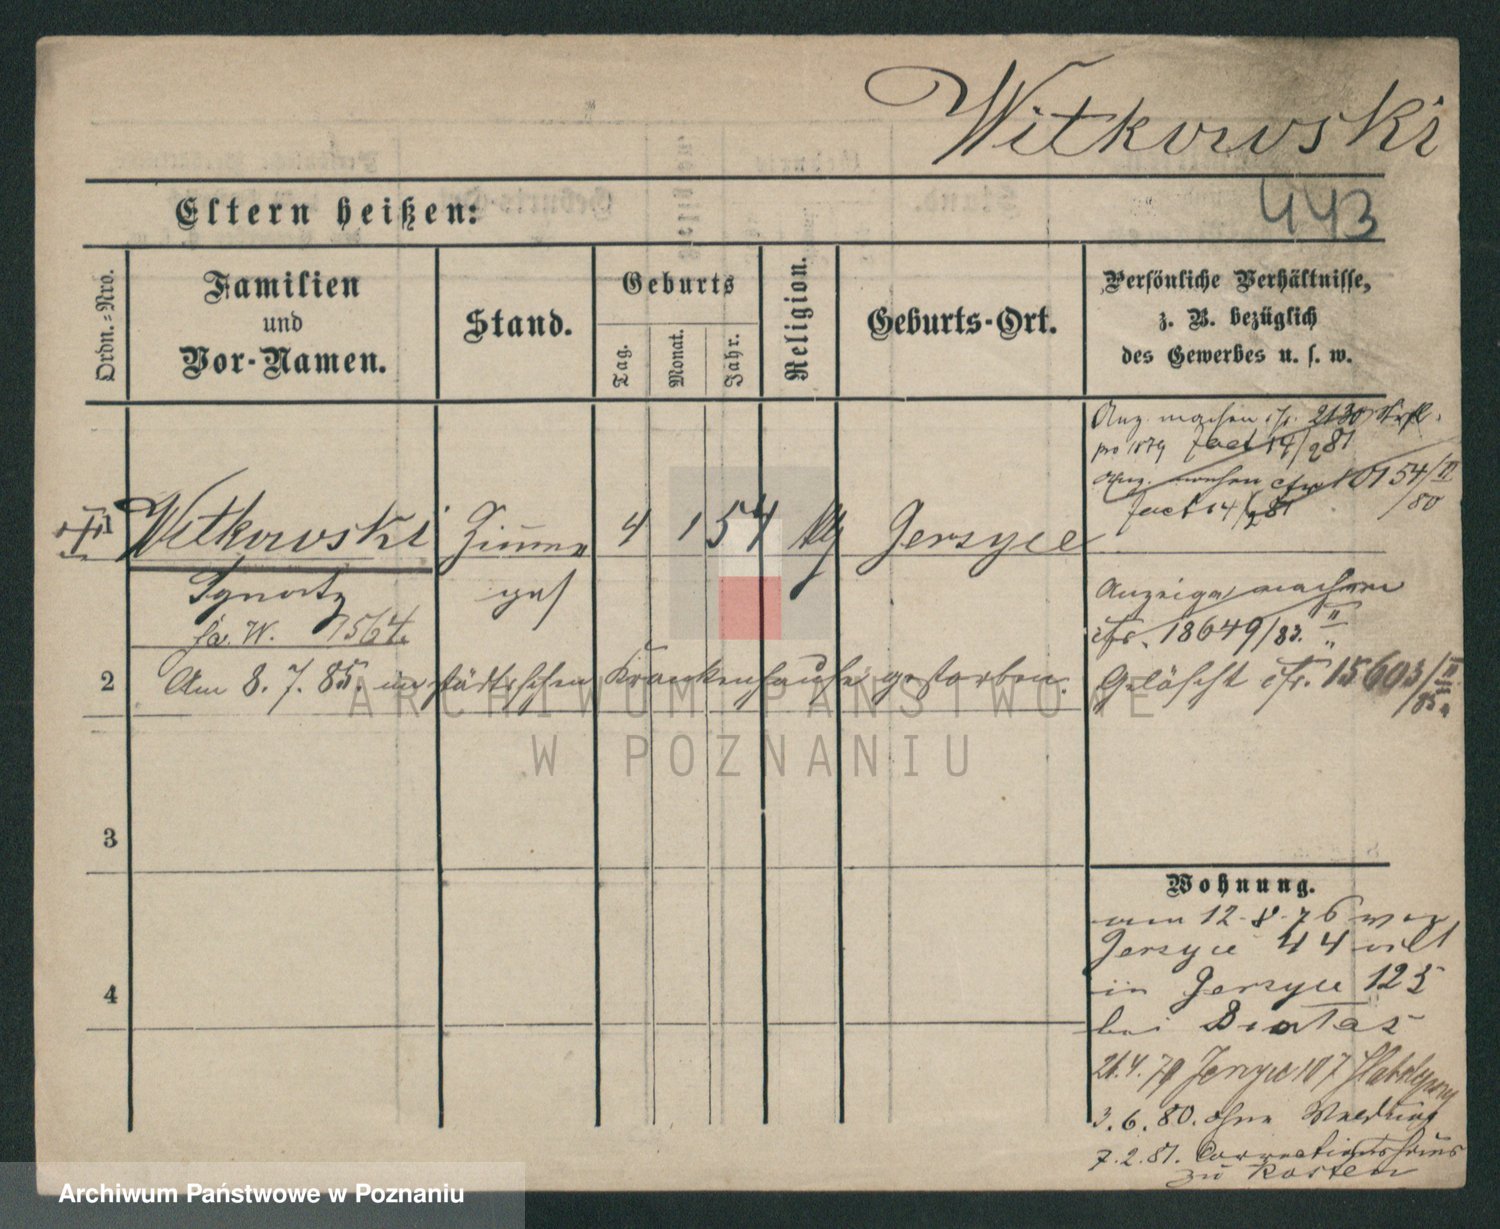 Witkowski
443
Eltern heißen:
Ordn.-Nro.
Familien
und
Vor-Namen.
Stand.
Geburts
Tag.
Monat.
Jahr.
Religion.
Geburts-Ort.
Persönliche Verhältnisse,
z. B. bezüglich
des Gewerbes u. s. w.
Anz. machen cfr. 2130
pro 1879 fact 14/2 81
Anz. machen cfr 10154/II
/80
fact 14/2 81
Witkowski Zimmer 4 1 54 ktg Jersyce
Ignatz ges
fr. W. 7564
Anzeige machen
cfr. 18649/83. II
2 Am 8. 7. 85. im städtischen Krankenhause gestorben.
Gelöscht cfr. 15603/II
/85
3
4
Wohnung.
am 12-8-76 von
Jersyce 44
in Jersyce 123
bei
21.4.79 Jersyce 107
3.6.80. ohne Meldung
7.2.81. Correctionshaus
zu Kosten
ARCHIWUM PAŃSTWOWE
W POZNANIU
Archiwum Państwowe w Poznaniu